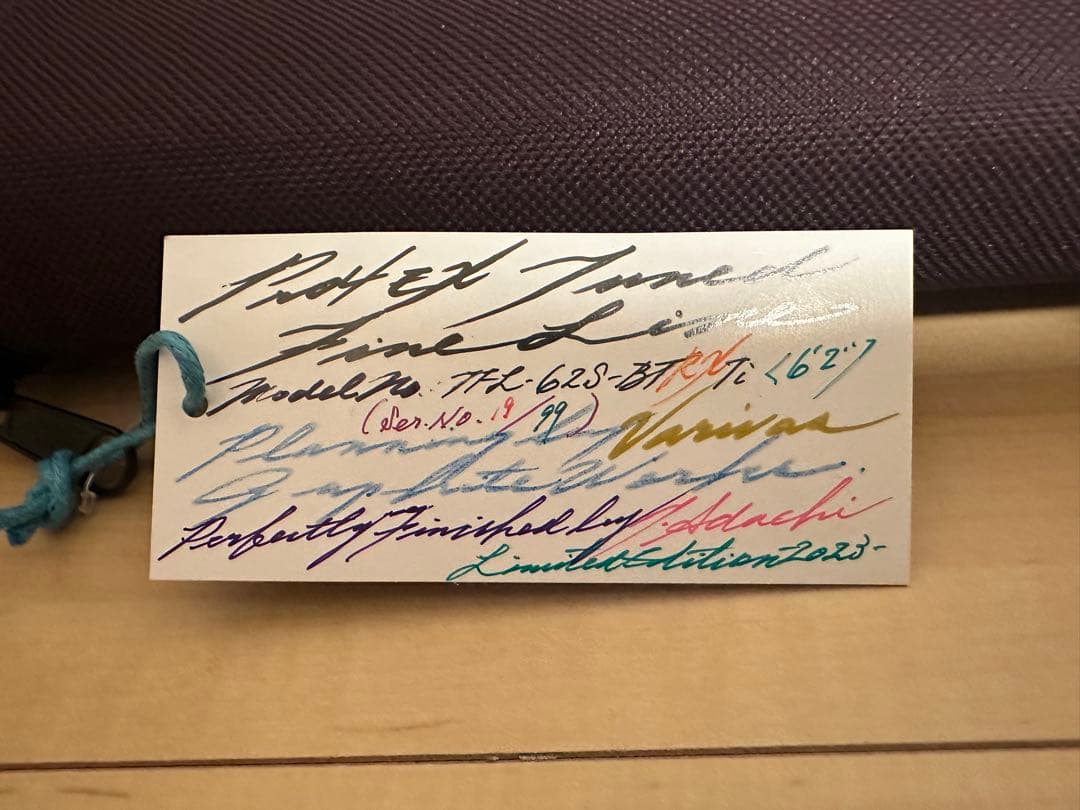 Pro4EX Tuned
Fine Line
Model No. TFL-62S-BTRXTi <6'2">
(Ser.No. 19/99)
Planning by Varivas
Graphite Works.
Perfectly Finished by T.Adachi
Limited Edition 2023-